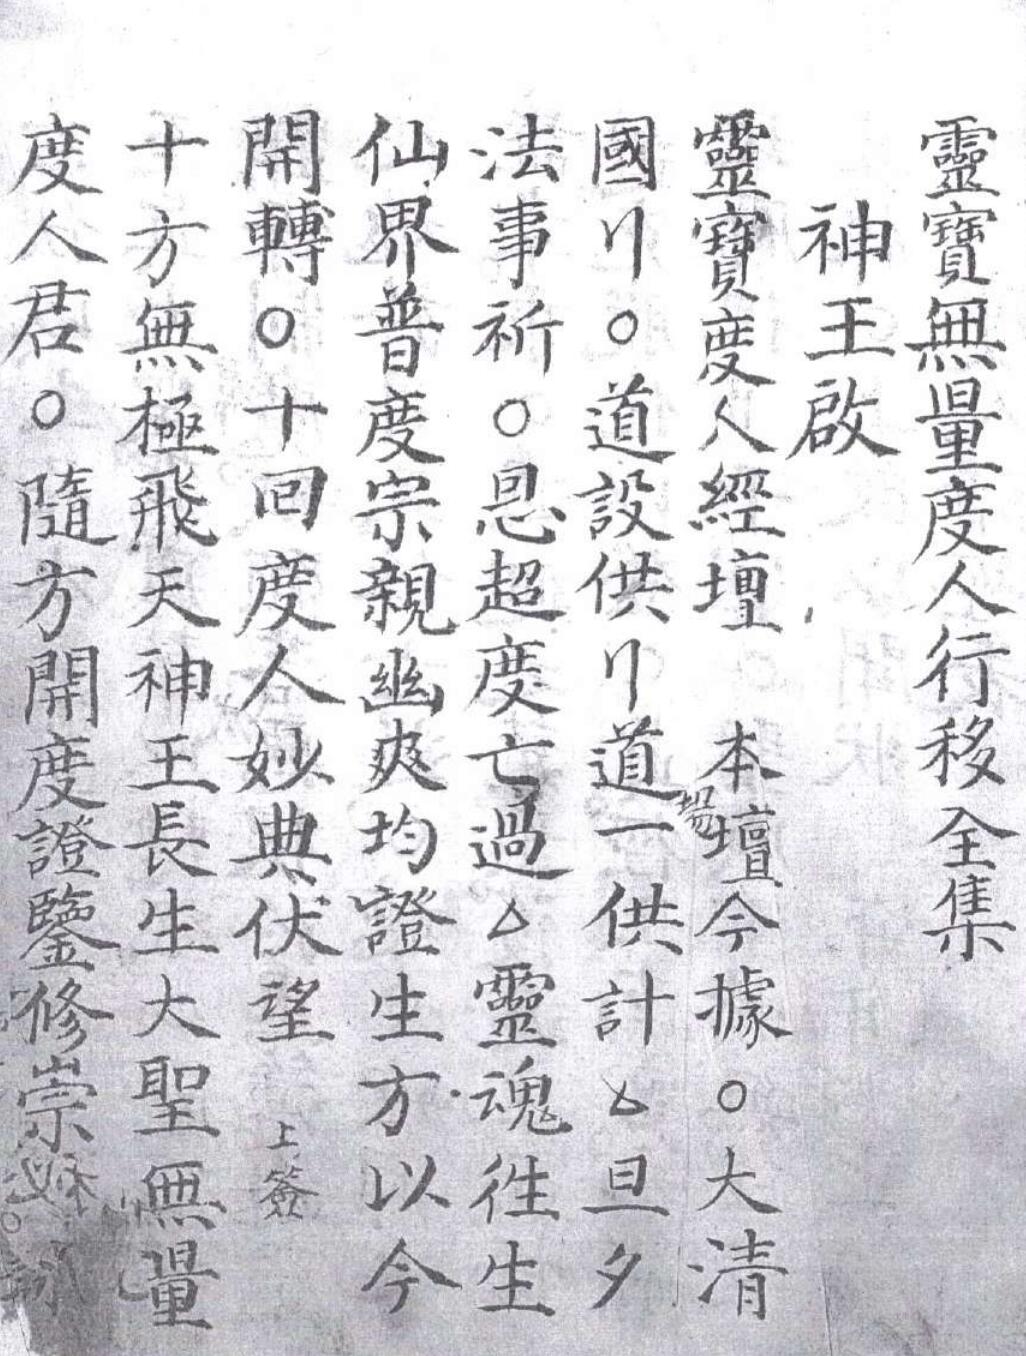 靈寶無量度人行移全集
神王啟
靈寶度人經壇　本壇今據○大清
場
國〢○道設供〢道一供計厶旦夕
法事祈○恩超度亡過厶靈魂徃生
仙界普度宗親幽爽均證生方以今
開轉○十回度人妙典伏望　上簽
十方無極飛天神王長生大聖無量
度人君○隨方開度證鑒修崇